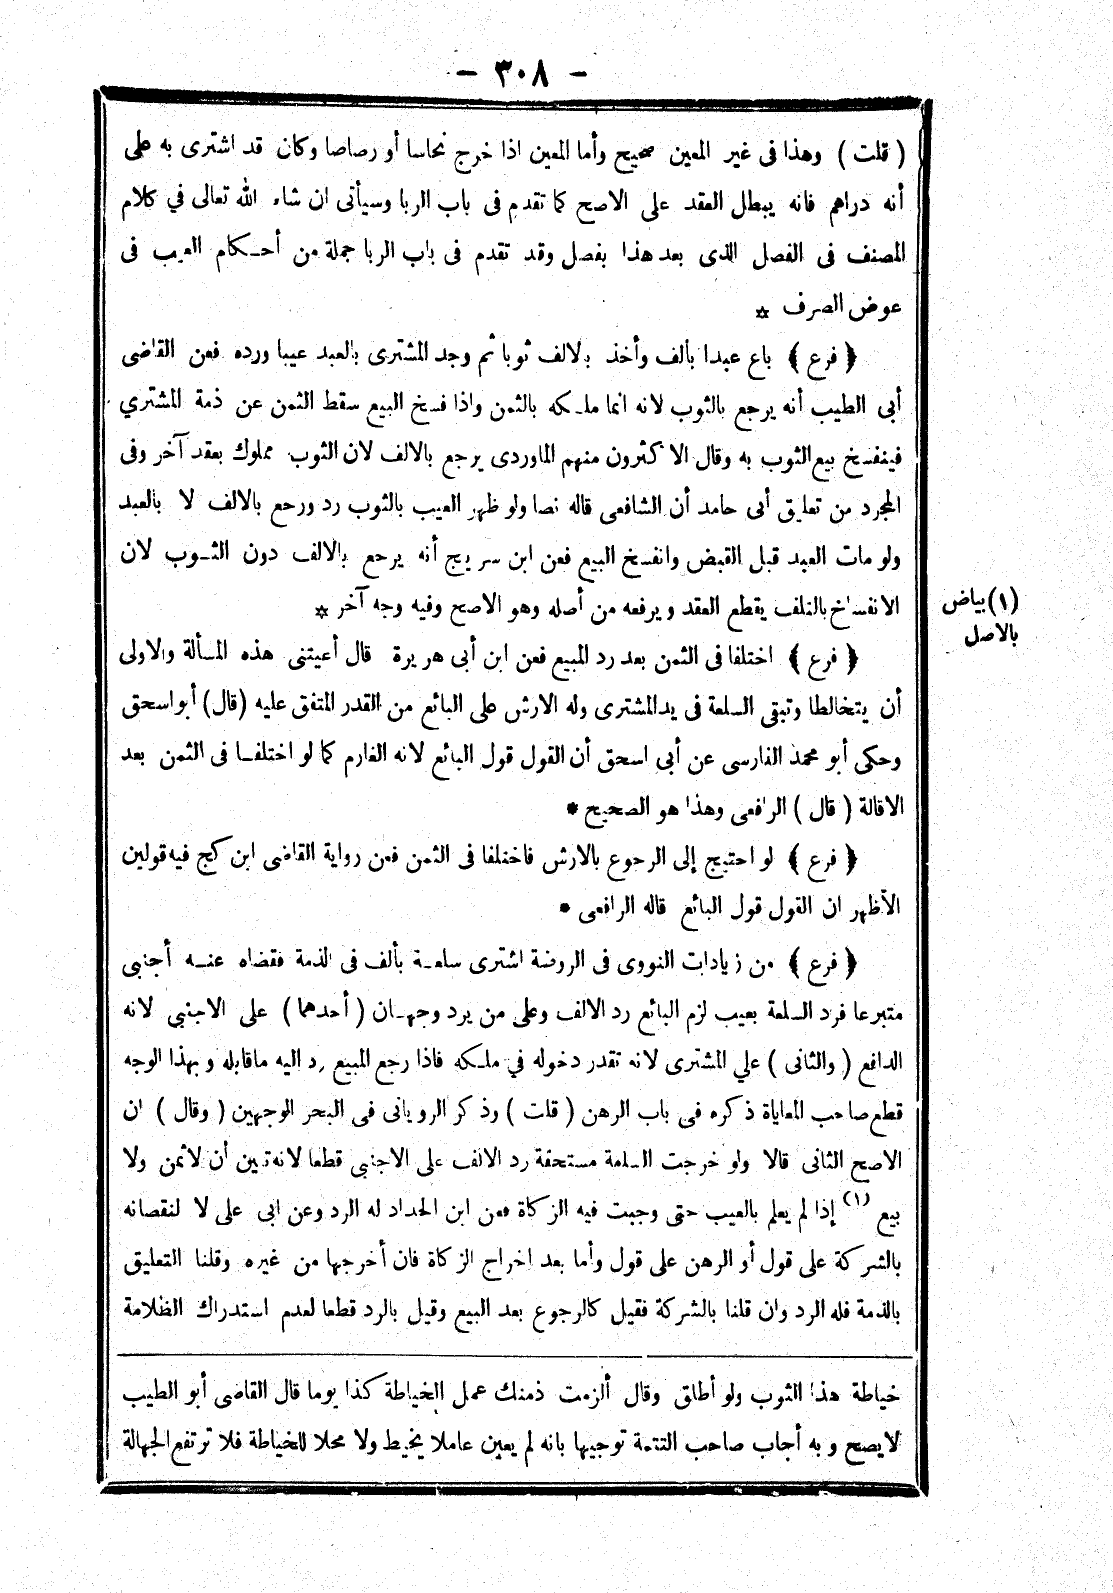 - ٣٠٨ -
( قلت ) وهذا فى غير المعين صحيح وأما المعين اذا خرج نحاسا أو رصاصا وكان قد اشترى به على
أنه دراهم فانه يبطل العقد على الاصح كما تقدم فى باب الربا وسيأتى ان شاء الله تعالى في كلام
المصنف فى الفصل الذى بعد هذا بفصل وقد تقدم فى باب الربا جملة من أحكام العيب فى
عوض الصرف *
﴿ فرع ﴾ باع عبدا بألف وأخذ بالالف ثوبا ثم وجد المشترى بالعبد عيبا ورده فعن القاضى
أبى الطيب أنه يرجع بالثوب لانه انما ملكه بالثمن واذا فسخ البيع سقط الثمن عن ذمة المشتري
فينفسخ بيع الثوب به وقال الاكثرون منهم الماوردى يرجع بالالف لان الثوب مملوك بعقد آخر وفى
المجرد من تعليق أبى حامد أن الشافعى قاله نصا ولو ظهر العيب بالثوب رد ورجع بالالف لا بالعبد
ولو مات العبد قبل القبض وانفسخ البيع فعن ابن سريج أنه يرجع بالالف دون الثوب لان
الانفساخ بالتلف يقطع العقد ويرفعه من أصله وهو الاصح وفيه وجه آخر *
﴿ فرع ﴾ اختلفا فى الثمن بعد رد المبيع فعن ابن أبى هريرة قال أعيتنى هذه المسألة والاولى
أن يتخالطا وتبقى السلعة فى يد المشترى وله الارش على البائع من القدر المتفق عليه (قال) أبو اسحق
وحكى أبو محمد الفارسى عن أبى اسحق أن القول قول البائع لانه الغارم كما لو اختلفا فى الثمن بعد
الاقالة ( قال ) الرافعى وهذا هو الصحيح *
﴿ فرع ﴾ لو احتيج إلى الرجوع بالارش فاختلفا فى الثمن فعن رواية القاضى ابن كج فيه قولين
الأظهر ان القول قول البائع قاله الرافعى *
﴿ فرع ﴾ من زيادات النووى فى الروضة اشترى سلعة بألف فى الذمة فقضاه عنه أجنبى
متبرعا فرد السلعة بعيب لزم البائع رد الالف وعلى من يرد وجهان ( أحدهما ) على الاجنبى لانه
الدافع ( والثانى ) علي المشترى لانه تقدر دخوله في ملكه فاذا رجع المبيع رد اليه ماقابله وبهذا الوجه
قطع صاحب المعاياة ذكره فى باب الرهن ( قلت ) وذكر الرويانى فى البحر الوجهين ( وقال ) ان
الاصح الثانى قالا ولو خرجت السلعة مستحقة رد الالف على الاجنبى قطعا لانه تبين أن لاثمن ولا
بيع (١) إذا لم يعلم بالعيب حتى وجبت فيه الزكاة فعن ابن الحداد له الرد وعن ابى على لا لنقصانه
بالشركة على قول أو الرهن على قول وأما بعد اخراج الزكاة فان أخرجها من غيره وقلنا التعليق
بالذمة فله الرد وان قلنا بالشركة فقيل كالرجوع بعد البيع وقيل بالرد قطعا لعدم استدراك الظلامة
(١) بياض
بالاصل
خياطة هذا الثوب ولو أطلق وقال ألزمت ذمتك عمل الخياطة كذا يوما قال القاضى أبو الطيب
لايصح وبه أجاب صاحب التتمة توجيها بانه لم يعين عاملا يخيط ولا محلا للخياطة فلا ترتفع الجهالة